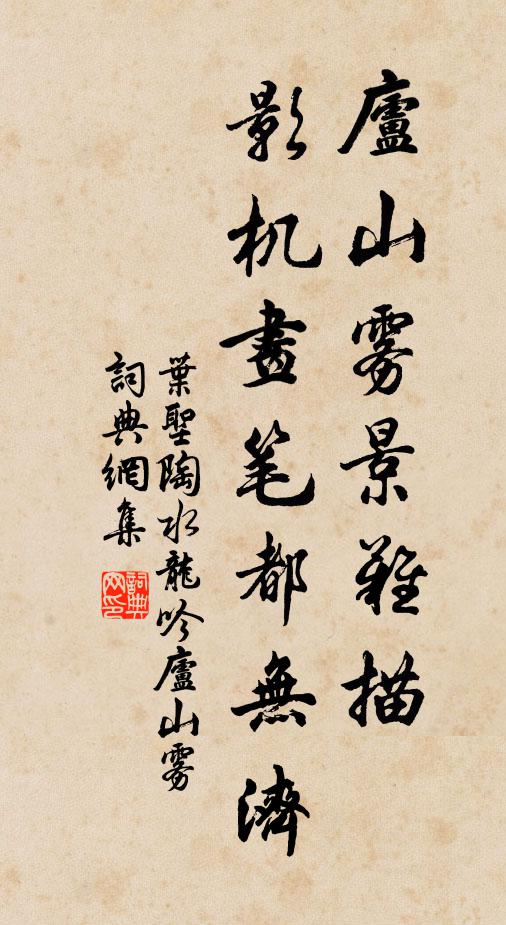 廬山雾景難描
影机畫笔都無濟
葉聖陶水龍吟廬山雾
詞典網集
詞典网印